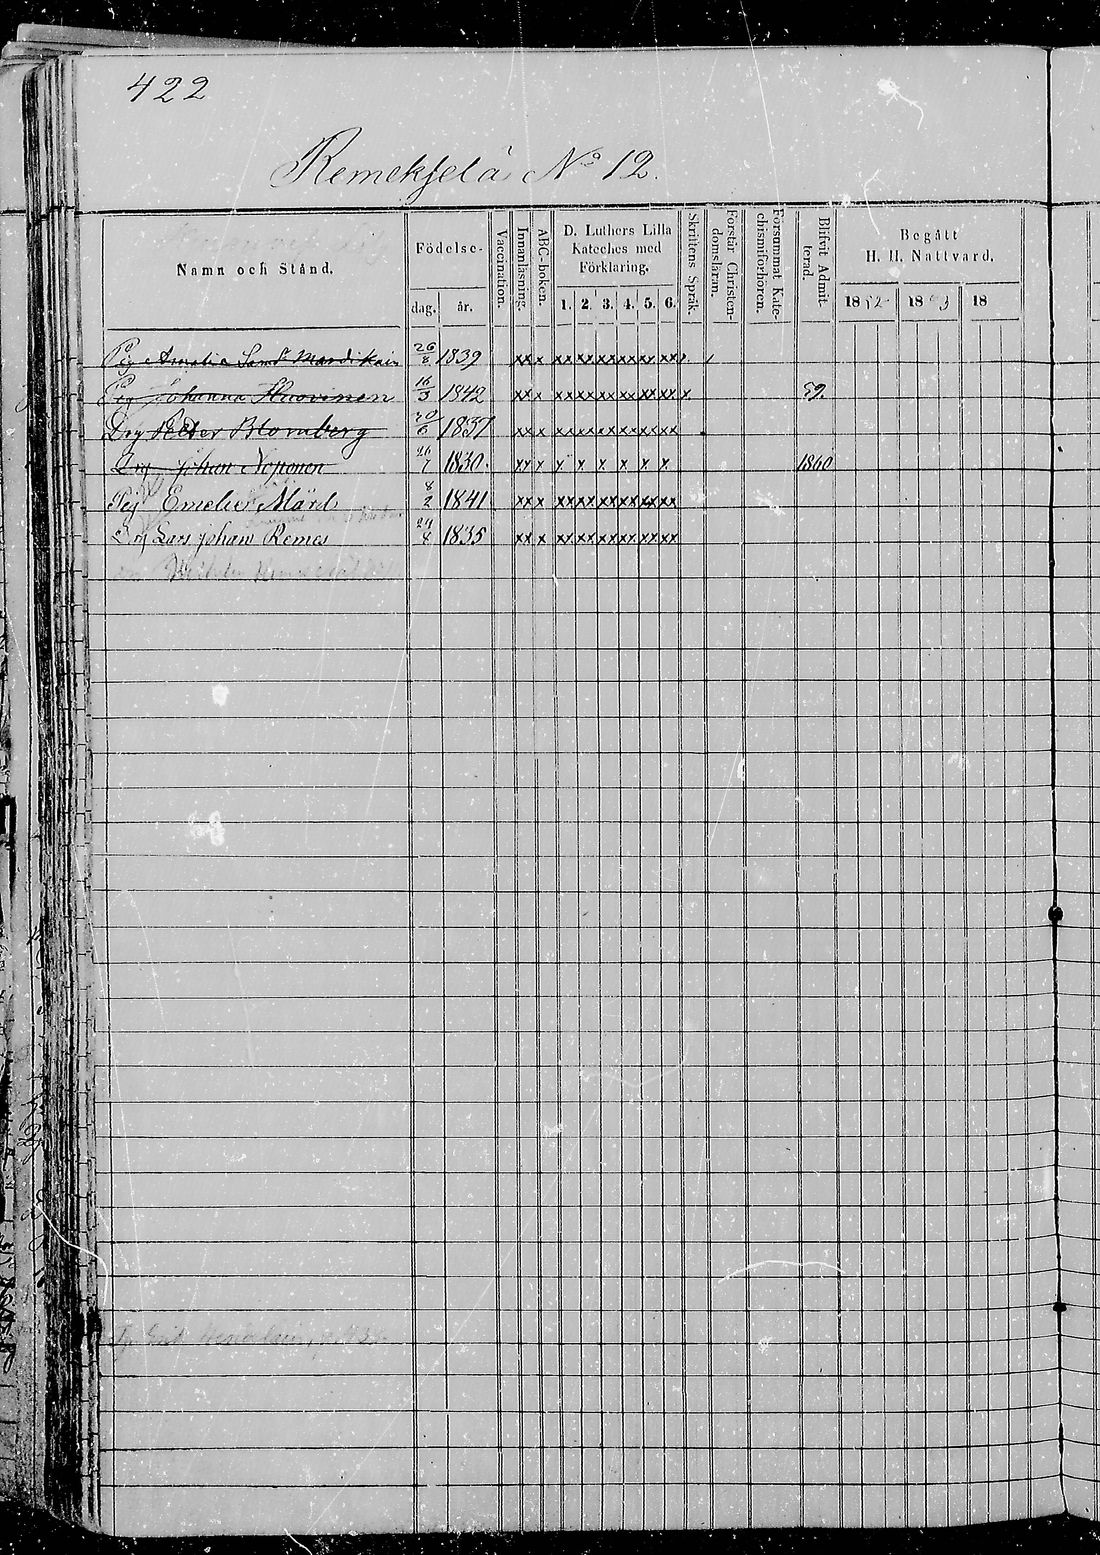 422
Remekselä No 12.
Namn och Stånd.
Födelse-
dag. år.
Vaccination.
Innanläsning.
ABC-boken.
D. Luthers Lilla
Kateches med
Förklaring.
1. 2. 3. 4. 5. 6.
Skriftens Språk.
Förstår Christen-
domsläran.
Försummat Kate-
chismiförhören.
Blifvit Admit-
terad.
Begått
H. H. Nattvard.
18 18 18
Pig Amalia 26/8 1839 xx x xx xx xx xx xx xx
Pig Johanna Huovinen 16/3 1842 xx x xx xx xx xx xx xx x 59.
Drg Peter Blomberg 20/6 1837 xx x xx xx xx xx xx xx
Drg Johan Noponen 26/7 1830. xx x x x x x x x 1860
Pig Emelie Märd 8/2 1841 xx x xx xx xx xx xx xx
Drg Lars Johan Remes 24/8 1835 xx x xx xx xx xx xx xx
Wilhelm